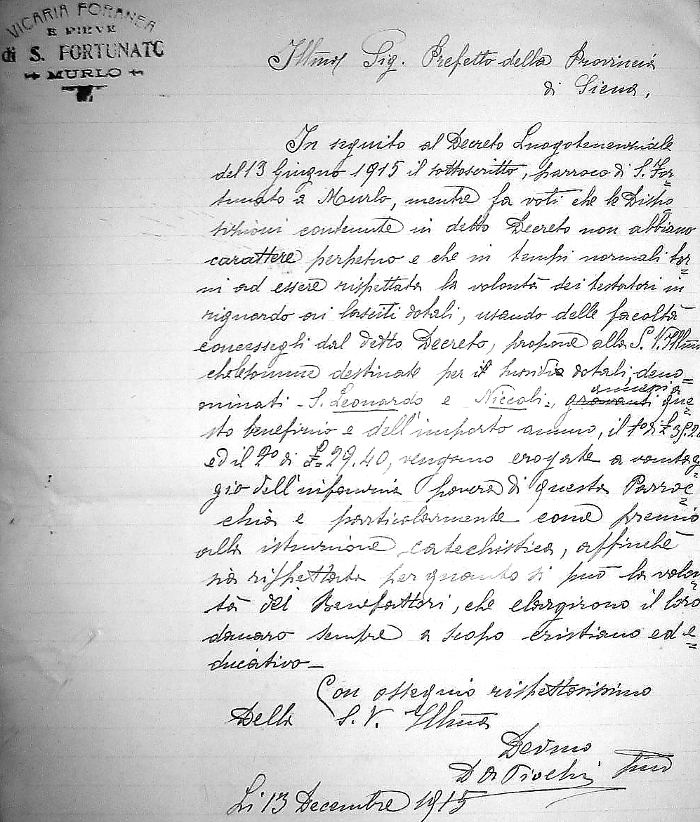 VICARIA FORANEA
E PIEVE
di S. FORTUNATO
MURLO
Illmo Sig. Prefetto della Provincia
di Siena,
In seguito al Decreto Luogotenenziale
del 13 Giugno 1915 il sottoscritto, parroco di S. For=
tunato a Murlo, mentre fa voti che le Dispo
sizioni contenute in detto Decreto non abbiano
carattere perpetuo e che in tempi normali tor=
ni ad essere rispettata la volontà dei testatori in
riguardo ai lasciti dotali, usando delle facoltà
concessegli dal detto Decreto, propone alla S. V. Illma
che le somme destinate per i sussidi dotali deno=
minati S. Leonardo e Niccoli, gravanti que=
sto benefizio e dell'importo annuo, il 1o di £
ed il 2o di £ 29.40, vengano erogate a vantag=
gio dell'infanzia povera di questa Parroc=
chia e particolarmente come premio
alla istruzione catechistica, affinchè
sia rispettata per quanto si può la volon=
tà dei Benefattori, che elargirono il loro
danaro sempre a scopo cristiano ed e=
ducativo_
Con ossequio rispettosissimo
Della S. V. Illma
Devmo
Li 13 Decembre 1915